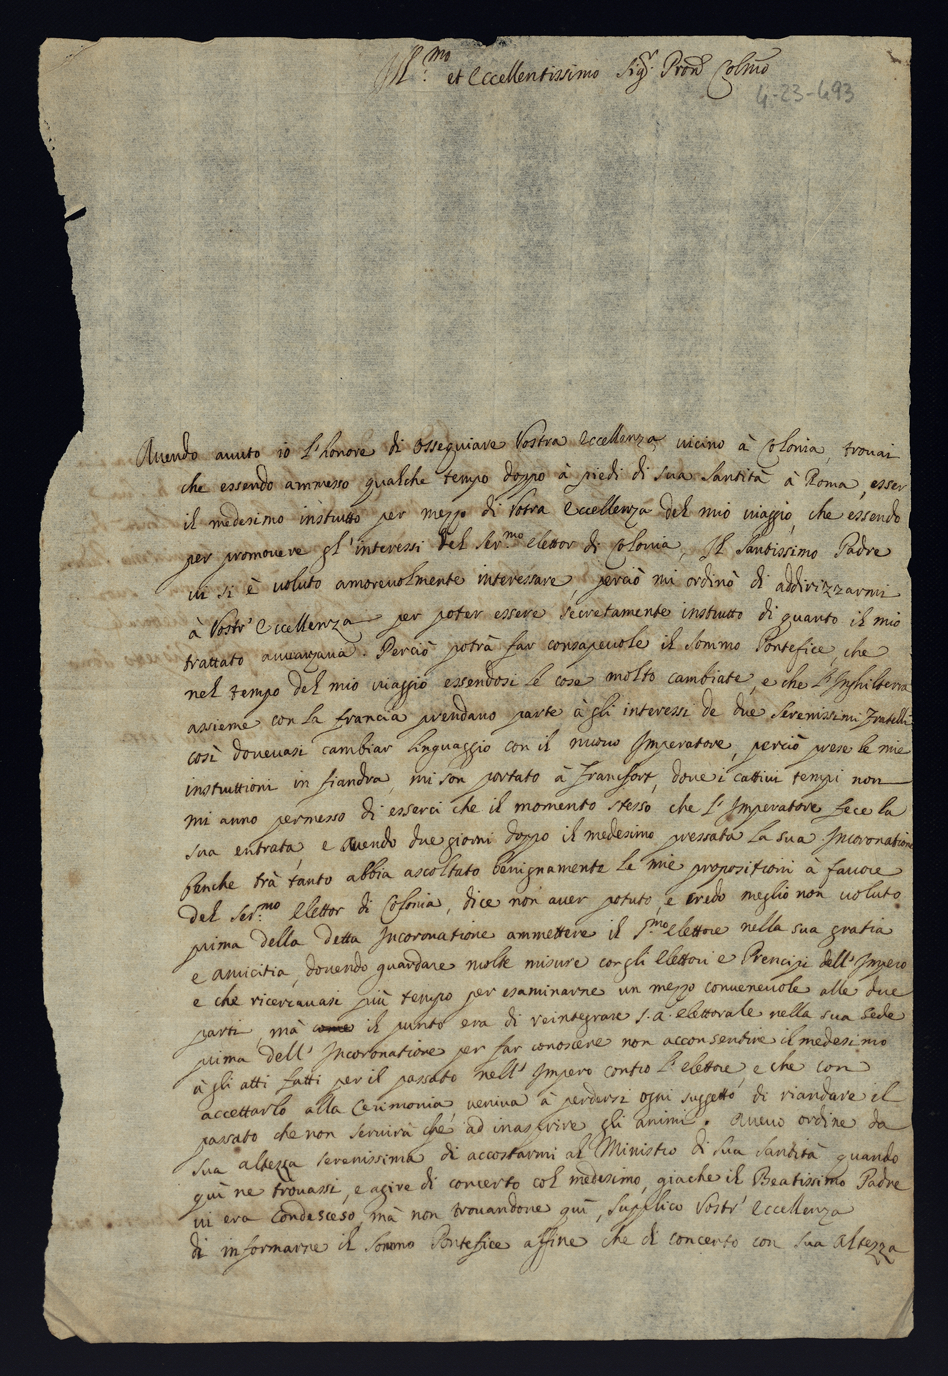 Ill.mo et Eccellentissimo Sig.r Pron Colmo
4-23-493
Avendo avuto io l'honore di ossequiare Vostra Eccellenza vicino à Colonia, trovai
che essendo ammesso qualche tempo doppo à piedi di sua Santità à Roma, esser
il medesimo instrutto per mezzo di Vostra Eccellenza del mio viaggio, che essendo
per promovere gl'interessi del Ser.mo Elettor di Colonia, Il Santissimo Padre
vi si è voluto amorevolmente interessare, perciò mi ordinò di addirizzarmi
à Vostr'Eccellenza per poter essere secretamente instrutto di quanto il mio
trattato avvanzava. Perciò potrà far consapevole il Sommo Pontefice, che
nel tempo del mio viaggio essendosi le cose molto cambiate, e che l'Inghilterra
assieme con la francia prendano parte à gli interessi de due Serenissimi Fratelli
così dovevasi cambiar linguaggio con il nuovo Imperatore, perciò prese le mie
instruttioni in fiandra, mi son portato à Francfort, dove i cattivi tempi non
mi anno permesso di esserci che il momento stesso, che l'Imperatore fece la
sua entrata, e avendo due giorni doppo il medesimo pressata la sua Incoronatione
benche trà tanto abbia ascoltato benignamente le mie propositioni à favore
del Ser.mo Elettor di Colonia, dice non aver potuto, e credo meglio non voluto
prima della detta Incoronatione ammettere il S.mo Elettore nella sua gratia
e amicitia, dovendo guardare molte misure con gli Elettori e Prencipi dell'Impero
e che ricercavasi più tempo per esaminarne un mezzo convenevole alle due
parti, mà come il punto era di reintegrare S.A. Elettorale nella sua Sede
prima dell'Incoronatione per far conoscere non acconsentire il medesimo
à gli atti fatti per il passato nell'Impero contro l'Elettore, e che con
accettarlo alla Cerimonia, veniva à perdersi ogni suggetto di riandare il
passato che non servirà che ad inasprire gli animi. Avevo ordine da
sua altezza serenissima di accostarmi al Ministro di sua Santità quando
quì ne trovassi, e agire di concerto col medesimo, giache il Beatissimo Padre
vi era Condesceso, mà non trovandone quì, supplico Vostr'Eccellenza
di informarne il Sommo Pontefice affine che di concerto con sua Altezza